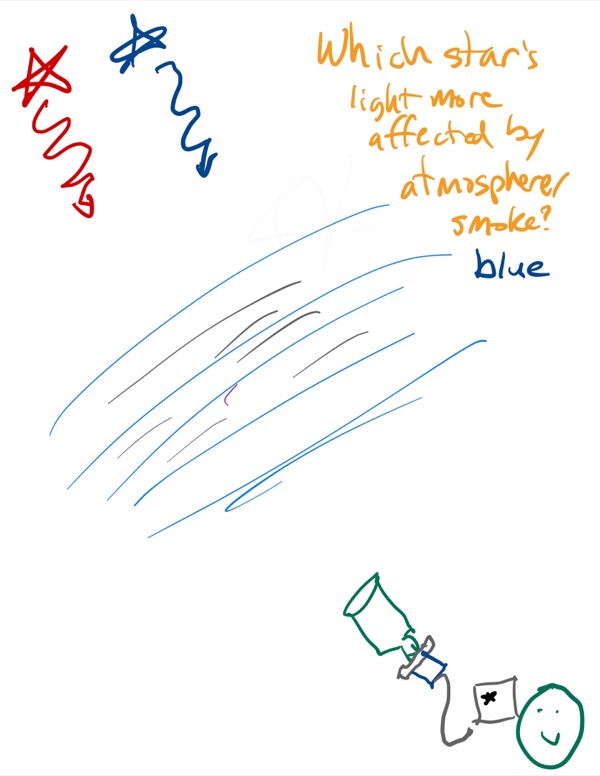 Which star's
light more
affected by
atmospherer
smoke?
blue